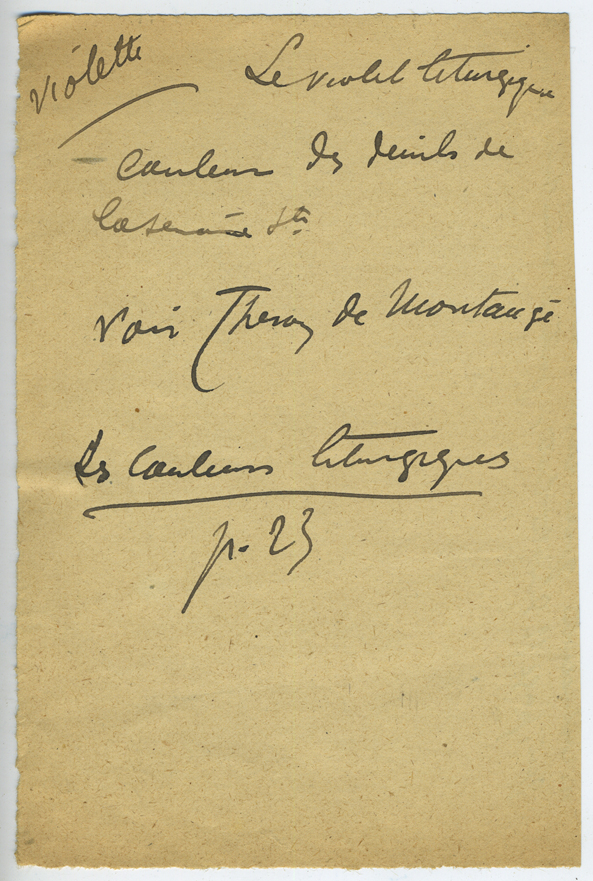 Violette
Le violet liturgique
Couleur des deuils de
la semaine Ste
voir Theron de Montaugé
Les couleurs liturgiques
p. 23